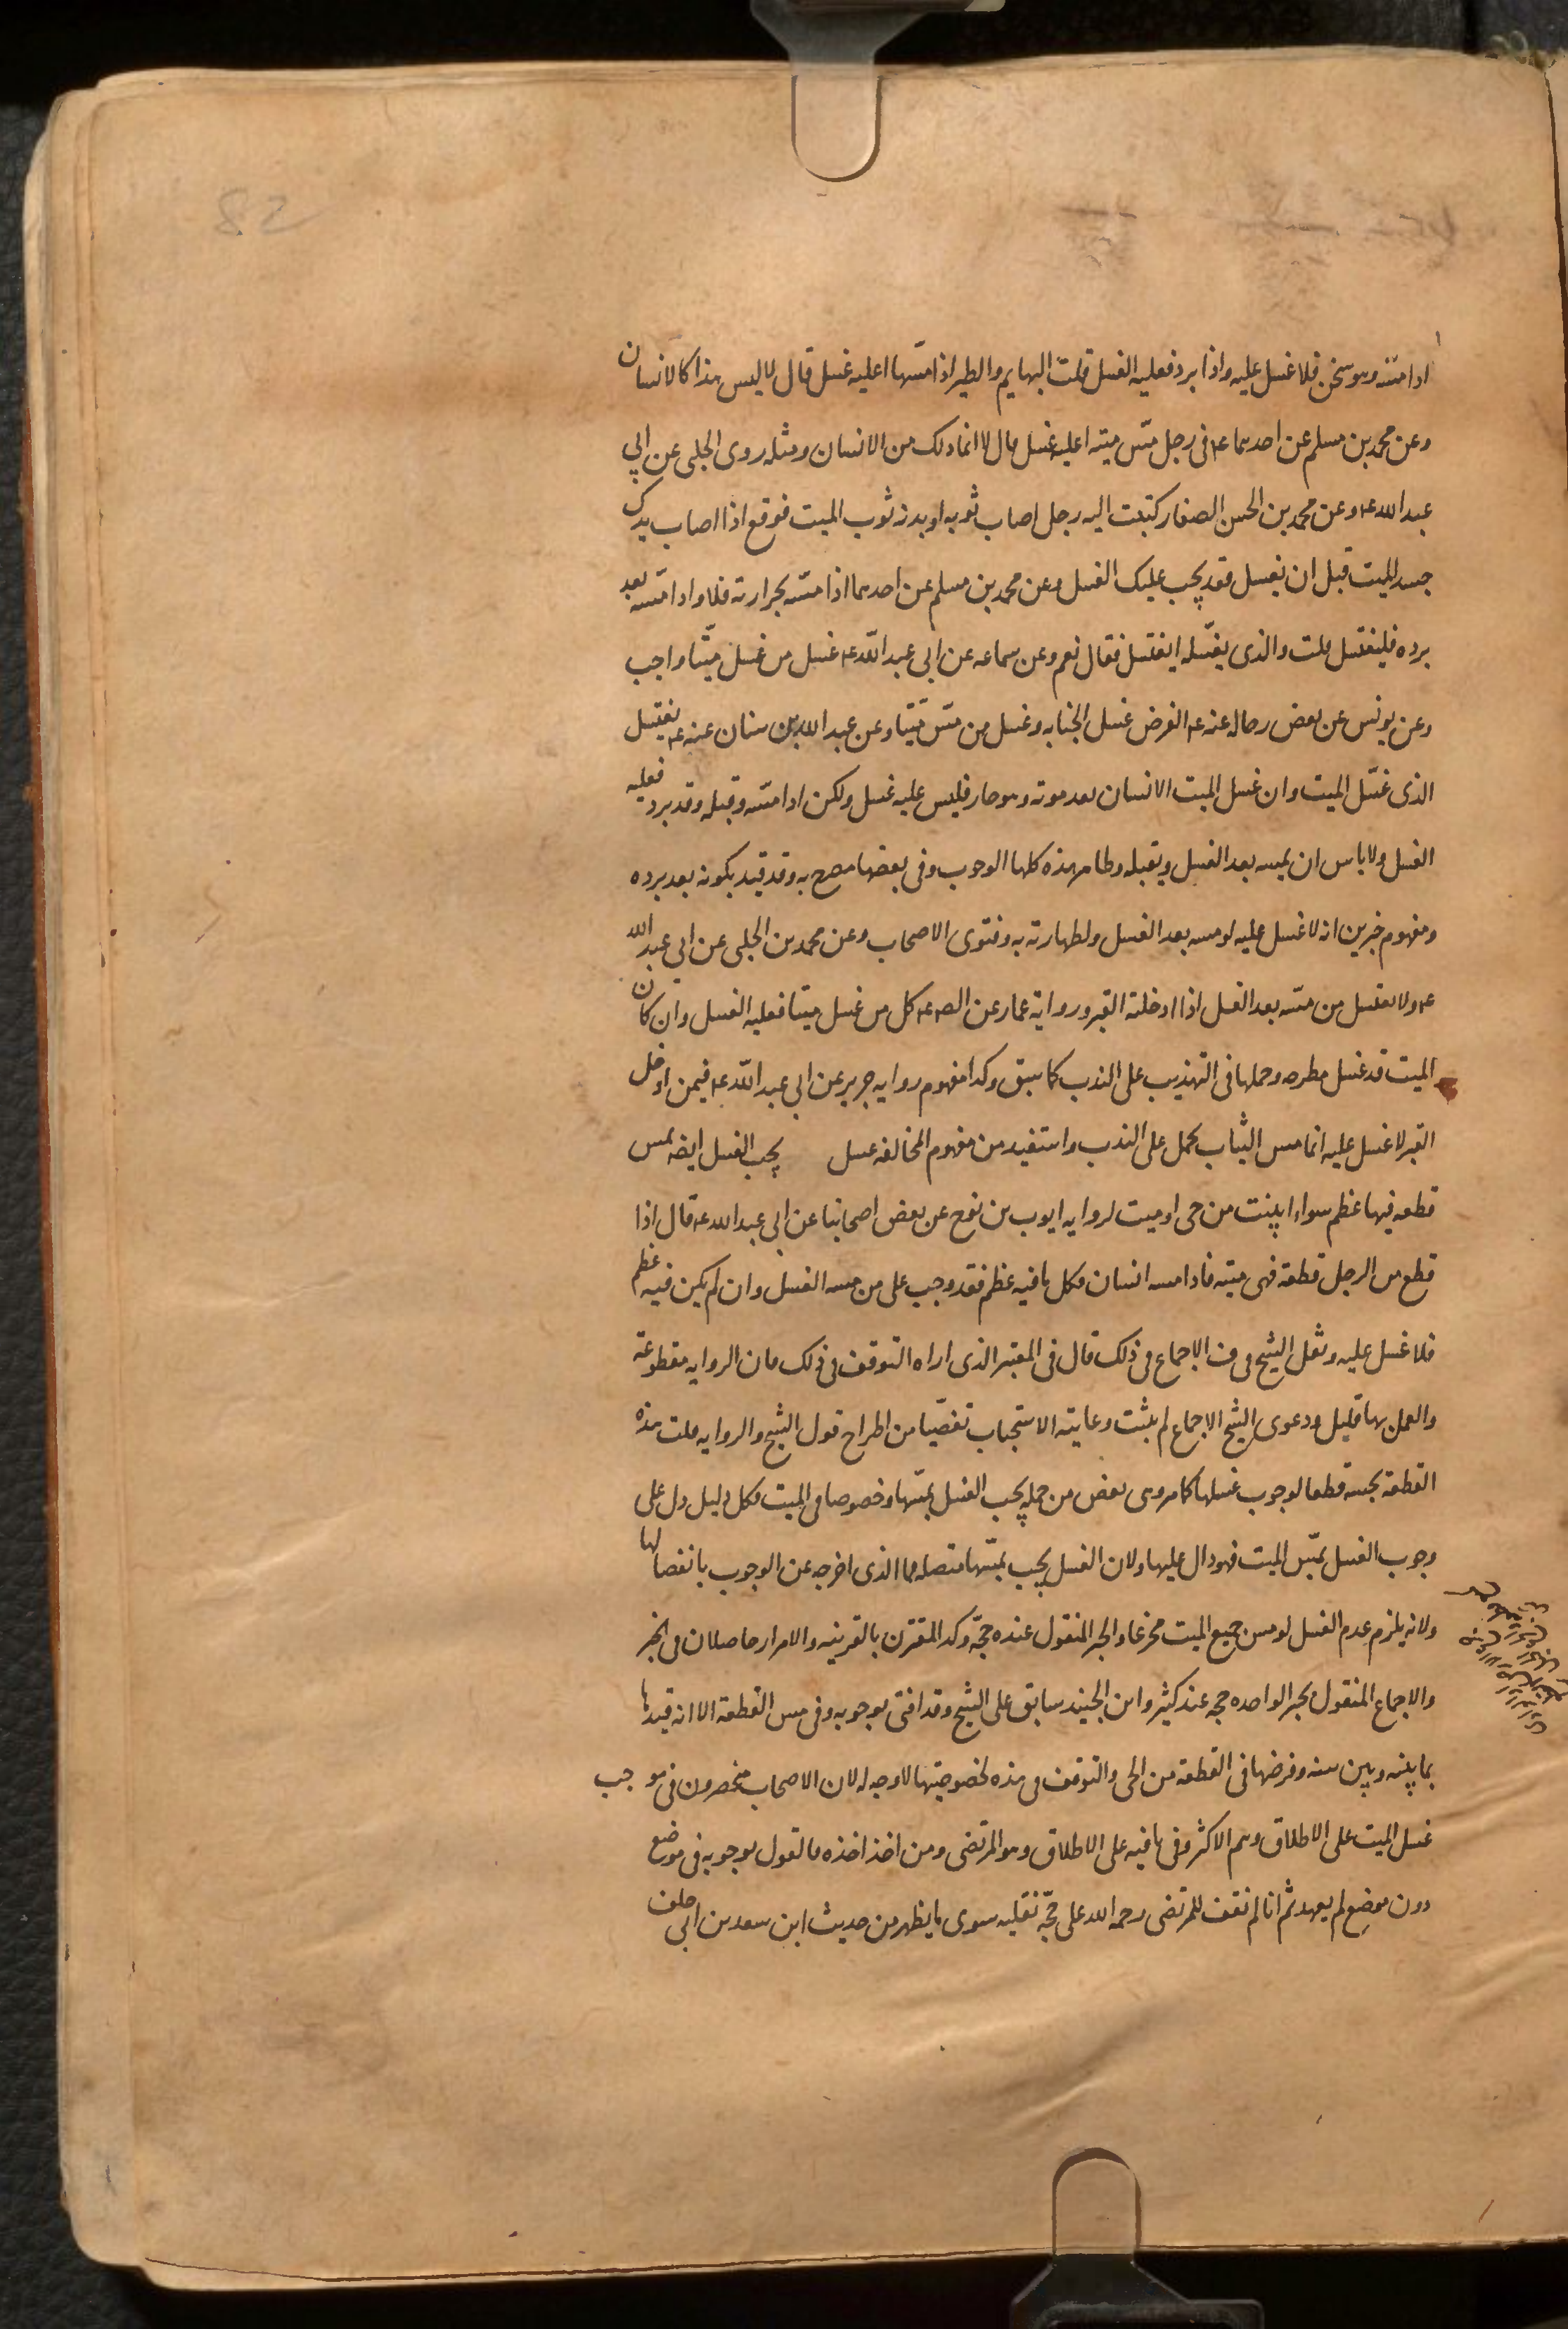 اذا مسّه وهو سخن فلا غسل عليه واذا برد فعليه الغسل قلت البهايم والطير اذا مسّها اعليه غسل قال لا ليس هذا كالانسان
وعن محمد بن مسلم عن احدهما ع‍ فى رجل مسّ ميته اعليه غسل قال لا انما ذلك من الانسان ومثله روى الحلبى عن ابي
عبد الله ع‍ وعن محمد بن الحسن الصفار كتبت اليه رجل اصاب ثوبه او بدنه ثوب الميت فوقع اذا اصاب يدك
جسد الميت قبل ان يغسل فقد يجب عليك الغسل وعن محمد بن مسلم عن احدهما اذا مسّه بحرارته فلا واذا مسّه بعد
برده فليغتسل قلت والذى يغسّله ايغتسل فقال نعم وعن سماعه عن ابى عبد اللّه ع‍ غسل من غسل ميّتا واجب
وعن يونس عن بعض رجاله عنه ع‍ الفرض غسل الجنابه وغسل من مسّ ميّتا وعن عبد الله بن سنان عنه ع‍ يغتسل
الذى غسّل الميت وان غسل الميت الانسان بعد موته وهو حار فليس عليه غسل ولكن اذا مسّه وقبله وقد برد فعليه
الغسل ولا باس ان يمسه بعد الغسل ويقبله وظاهر هذه كلها الوجوب وفى بعضها مصرح به وقد قيد بكونه بعد برده
ومفهوم خبرين انه لا غسل عليه لو مسه بعد الغسل ولطهارته به وفتوى الاصحاب وعن محمد بن الحلبى عن ابى عبد الله
ع‍ ولا يغتسل من مسّه بعد الغسل اذا ادخلته القبر ورواية عمار عن الص ع‍ كل من غسل ميتا فعليه الغسل وان كان
الميت قد غسل مطرحه وحملها فى التهذيب على الندب كما سبق وكذا مفهوم روايه حريز عن ابى عبد اللّه ع‍ فيمن ادخل
القبر لا غسل عليه انما مس الثياب يحمل على الندب واستفيد من مفهوم المخالفه غسل يجب الغسل ايضه بمس
قطعه فيها عظم سواء ابينت من حى او ميت لروايه ايوب بن نوح عن بعض اصحابنا عن ابى عبد الله ع‍ قال اذا
قطع من الرجل قطعة فهى ميته فاذا مسه انسان فكل ما فيه عظم فقد وجب على من مسه الغسل وان لم يكن فيه عظم
فلا غسل عليه ونقل الشيخ فى ف الاجماع فى ذلك قال فى المعتبر الذى اراه التوقف فى ذلك فان الروايه مقطوعة
والعمل بها قليل ودعوى الشيخ الاجماع لم يثبت وغايته الاستحباب تفصّيا من اطراح قول الشيخ والروايه قلت هذه
القطعة نجسه قطعا لوجوب غسلها كما مر وهى بعض من جمله يجب الغسل بمسّها وخصوصا فى الميت فكل دليل دل على
وجوب الغسل بمسّ الميت فهو دال عليها ولان الغسل يجب بمسّها متصله فما الذى اخرجه عن الوجوب بانفصالها
ولانه يلزم عدم الغسل لو مس جميع الميت ممزعا والخبر المنقول عنده حجّة وكذا المقترن بالقرينه والامرار حاصلان فى الخبر
والاجماع المنقول بخبر الواحد حجه عند كثير وابن الجنيد سابق على الشيخ وقد افتى بوجوبه وفى مس القطعة الا انه قيدها
بما بينه وبين سنه وفرضها فى القطعة من الحى والتوقف فى هذه لخصوصيتها لا وجه له لان الاصحاب منحصرون فى موجب
غسل الميت على الاطلاق وهم الاكثر وفى نافيه على الاطلاق وهو المرتضى ومن اخذ اخذه فالقول بوجوبه فى موضع
دون موضع لم يعهد ثم انا لم نقف للمرتضى رحمه الله على حجّة نقليه سوى ما يظهر من حديث ابن سعد بن ابى خلف